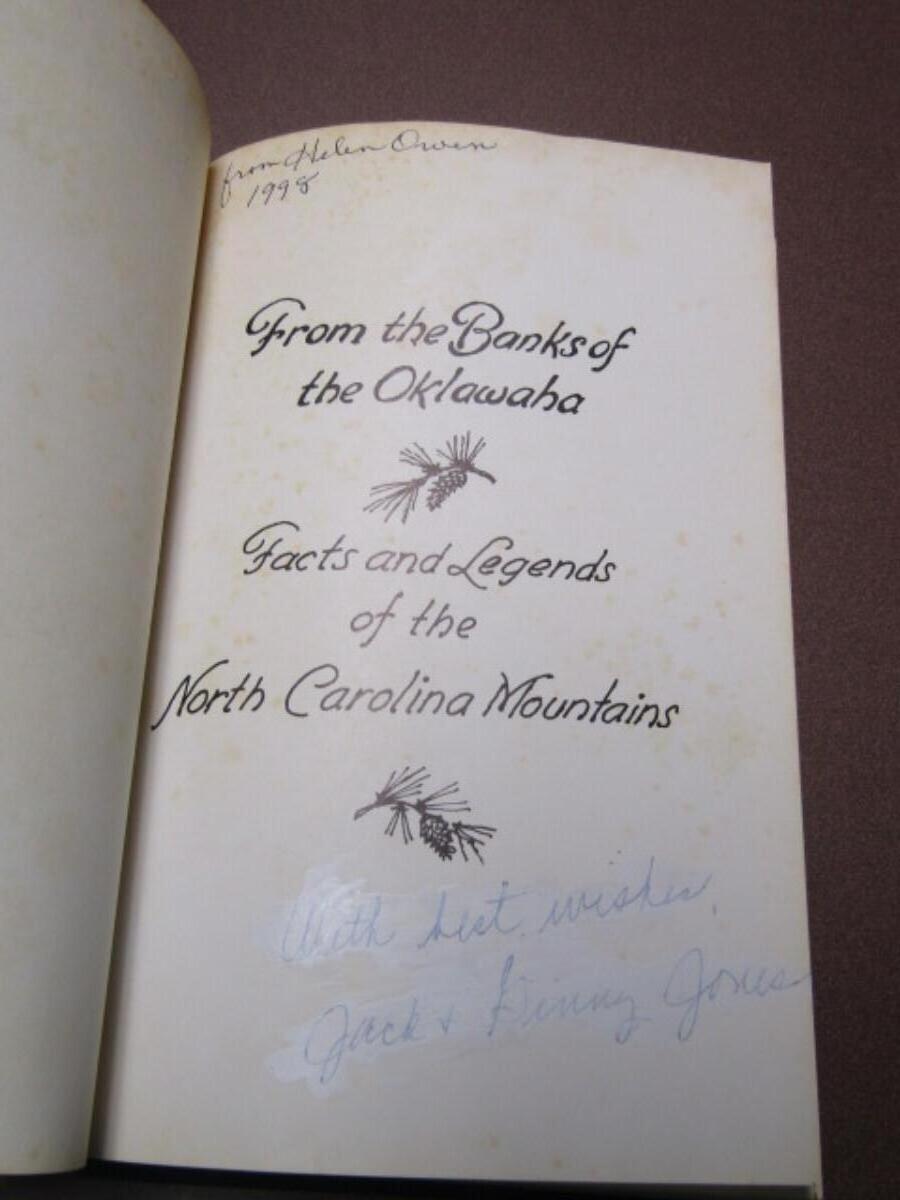 from Helen Owen
1998
From the Banks of
the Oklawaha
Facts and Legends
of the
North Carolina Mountains
With best wishes,
Jack & Ginny Jones